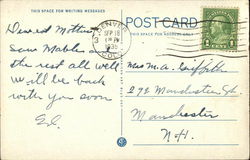 THIS SPACE FOR WRITING MESSAGES
POST CARD
THIS SPACE FOR ADDRESS ONLY
DENVER
SEP 18
1935
COLO.
1 CENT 1
Dearest Mother
Saw Mable and
the rest all well
Will be back
with you soon
Mrs M. A. Griffith
272 Manchester St
Manchester
N.H.